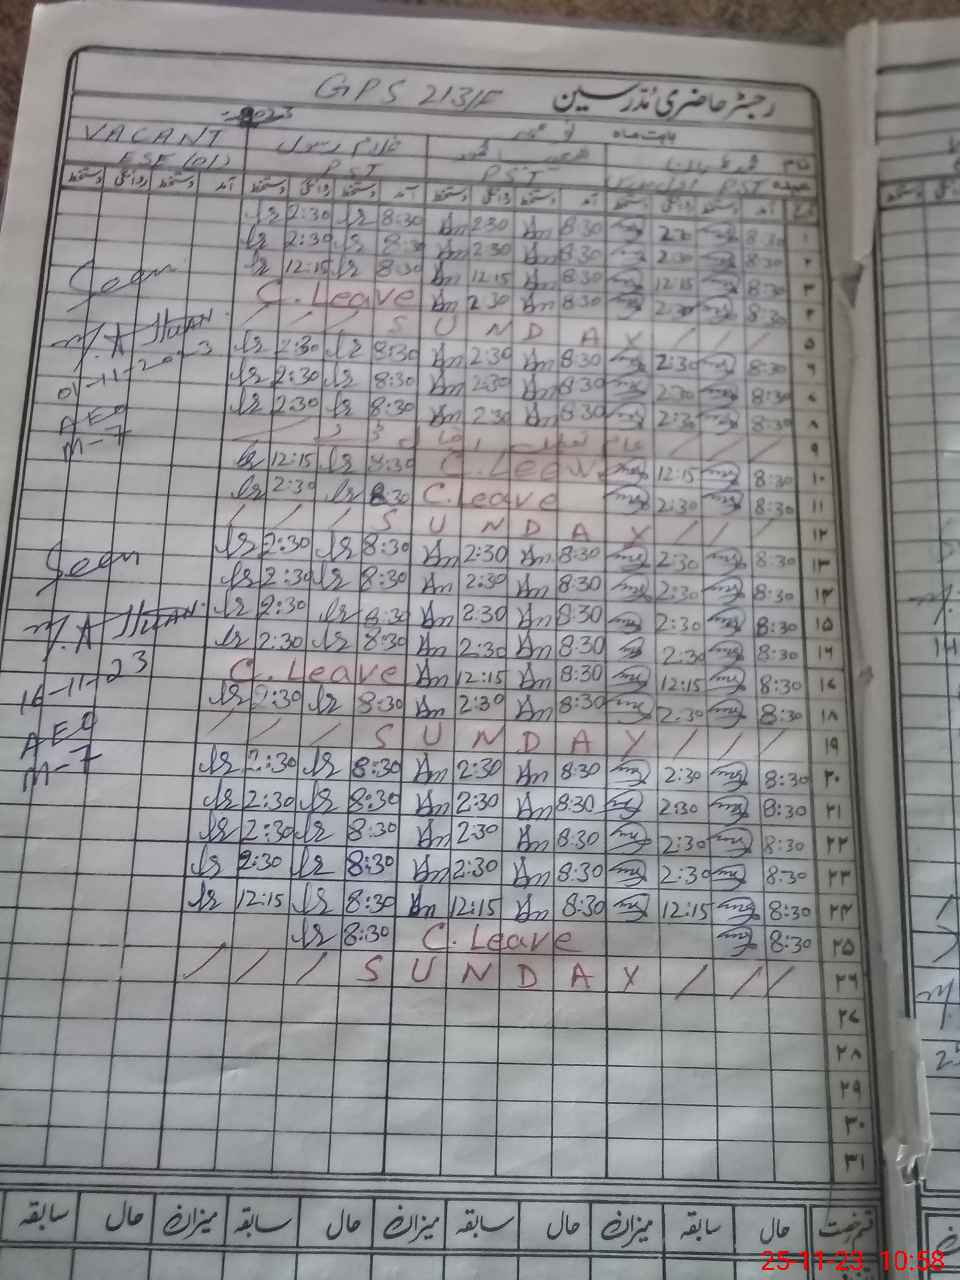 GPS 213/F رجسٹر حاضری مدرسین
بابت ماہ 2023
VACANT غلام رسول
ESE (01) PST PST PST عہدہ
دستخط روانگی دستخط آمد دستخط روانگی دستخط آمد دستخط روانگی دستخط آمد دستخط روانگی دستخط آمد
2:30 8:30 2:30 8:30 2:30 8:30 ۱
2:30 8:30 2:30 8:30 2:30 8:30 ۲
12:15 8:30 12:15 8:30 12:15 8:30 ۳
Seen C. Leave 2:30 8:30 2:30 8:30 ۴
/ / / S U N D A Y / / / ۵
2:30 8:30 2:30 8:30 2:30 8:30 ۶
01-11-2023 2:30 8:30 2:30 8:30 2:30 8:30 ۷
AEO 2:30 8:30 2:30 8:30 2:30 8:30 ۸
M-7 عام تعطیل ۹
12:15 8:30 C. Leave 12:15 8:30 ۱۰
2:30 8:30 C. Leave 2:30 8:30 ۱۱
/ / / S U N D A Y / / / ۱۲
Seen 2:30 8:30 2:30 8:30 2:30 8:30 ۱۳
2:30 8:30 2:30 8:30 2:30 8:30 ۱۴
2:30 8:30 2:30 8:30 2:30 8:30 ۱۵
2:30 8:30 2:30 8:30 2:30 8:30 ۱۶
16-11-23 C. Leave 12:15 8:30 12:15 8:30 ۱۷
2:30 8:30 2:30 8:30 2:30 8:30 ۱۸
AEO / / / S U N D A Y / / / ۱۹
M-7 2:30 8:30 2:30 8:30 2:30 8:30 ۲۰
2:30 8:30 2:30 8:30 2:30 8:30 ۲۱
2:30 8:30 2:30 8:30 2:30 8:30 ۲۲
2:30 8:30 2:30 8:30 2:30 8:30 ۲۳
12:15 8:30 12:15 8:30 12:15 8:30 ۲۴
8:30 C. Leave 8:30 ۲۵
/ / / S U N D A Y / / / ۲۶
۲۷
۲۸
۲۹
۳۰
۳۱
سابقہ حال میزان سابقہ حال میزان سابقہ حال میزان سابقہ حال فرخصت
25-11-23 10:58